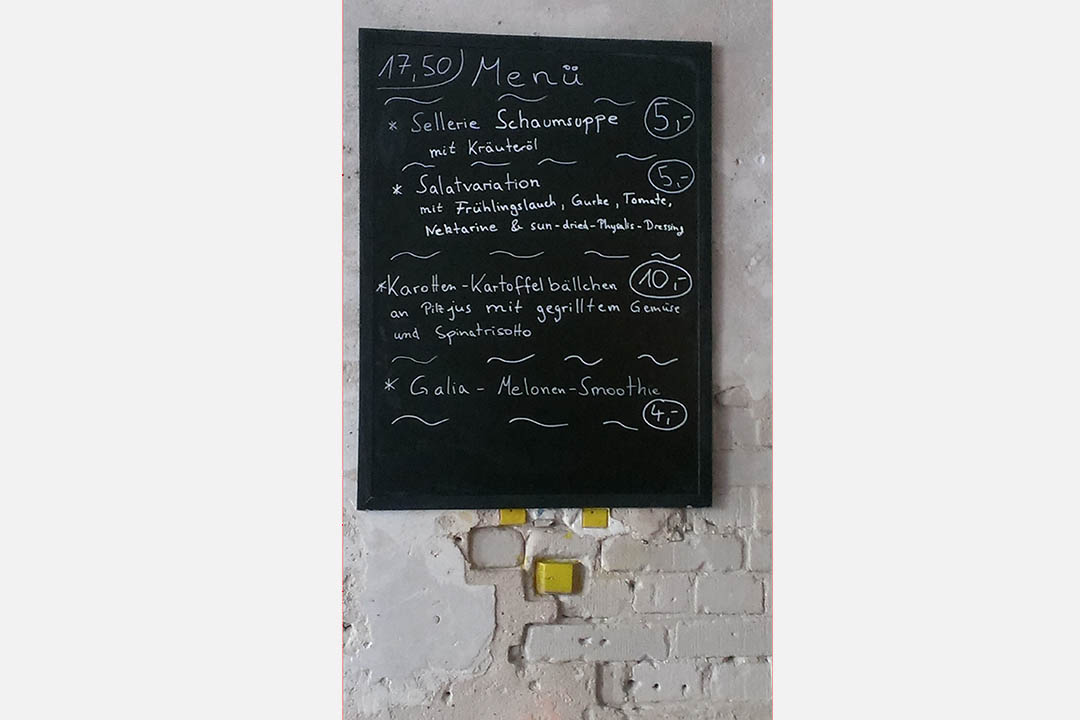 17,50) Menü
* Sellerie Schaumsuppe 5,-
mit Kräuteröl
* Salatvariation 5,-
mit Frühlingslauch, Gurke, Tomate,
Nektarine & sun-dried-Physalis-Dressing
*Karotten-Kartoffelbällchen 10,-
an Pilzjus mit gegrilltem Gemüse
und Spinatrisotto
* Galia - Melonen-Smoothie
4,-